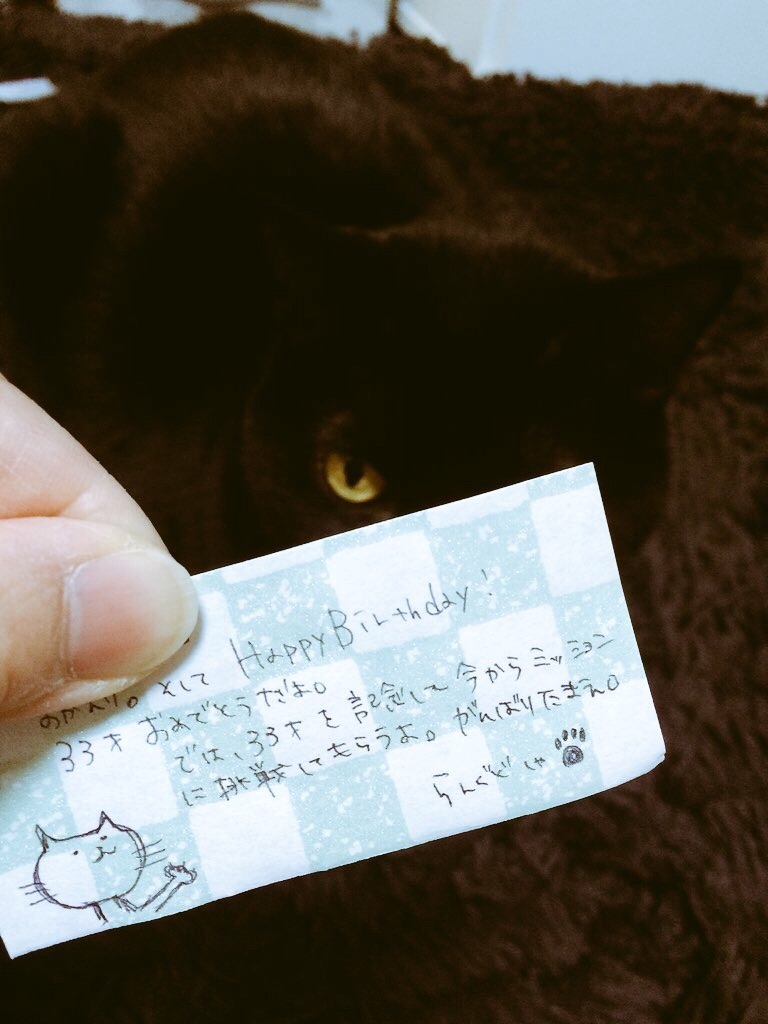 おかえり。そして Happy Birthday!
33才おめでとうだよ。
では、33才を記念して今からミッション
に挑戦してもらうよ。がんばりたまえ。
らんぐどしゃ